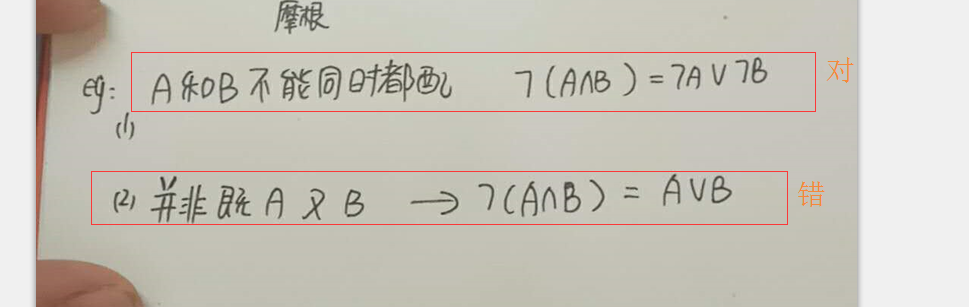 摩根
eg: A和B不能同时都配 ￢(A∧B)=￢A∨￢B 对
(1)
(2) 并非既A又B → ￢(A∧B) = A∨B 错